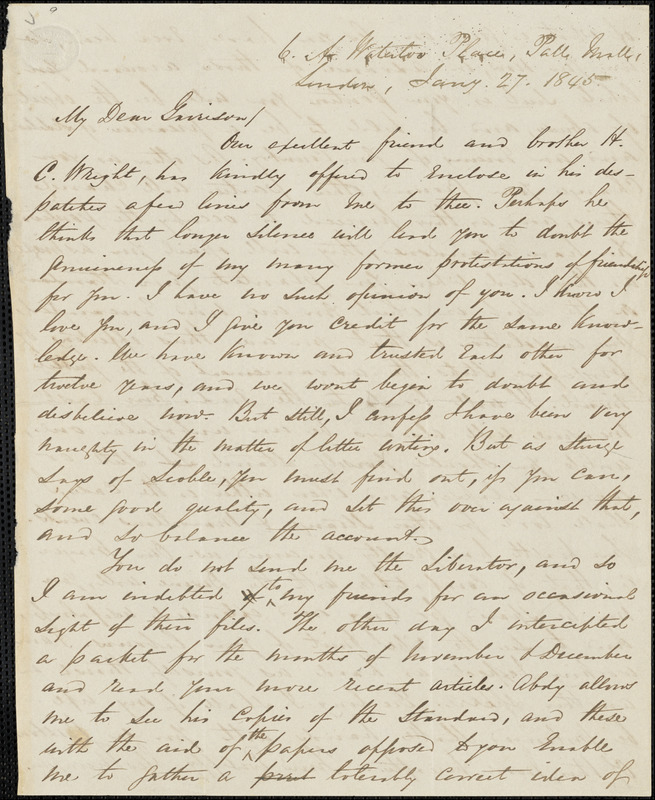 6. A Waterloo Place, Pall Mall,
London, Jany. 27. 1845
My Dear Garrison/
Our exellent friend and brother H.
C. Wright, has kindly offered to enclose in his des-
patches a few lines from me to thee. Perhaps he
thinks that longer silence will lead you to doubt the
genuineness of my many former protestations of friendship
for you. I have no such opinion of you. I know I
love you, and I give you credit for the same know-
ledge. We have known and trusted each other for
twelve years, and we wont begin to doubt and
disbelieve now. But still, I confess I have been very
naughty in the matter of letter writing. But as Sturge
says of Scoble, you must find out, if you can,
some good quality, and set this over against that,
and so balance the account.
You do not send me the Liberator, and so
I am indebted to my friends for an occasional
sight of their files. The other day I intercepted
a packet for the months of November & December
and read your more recent articles. Abdy allows
me to see his copies of the Standard, and these
with the aid of the papers opposed to you enable
me to gather a tolerably correct idea of